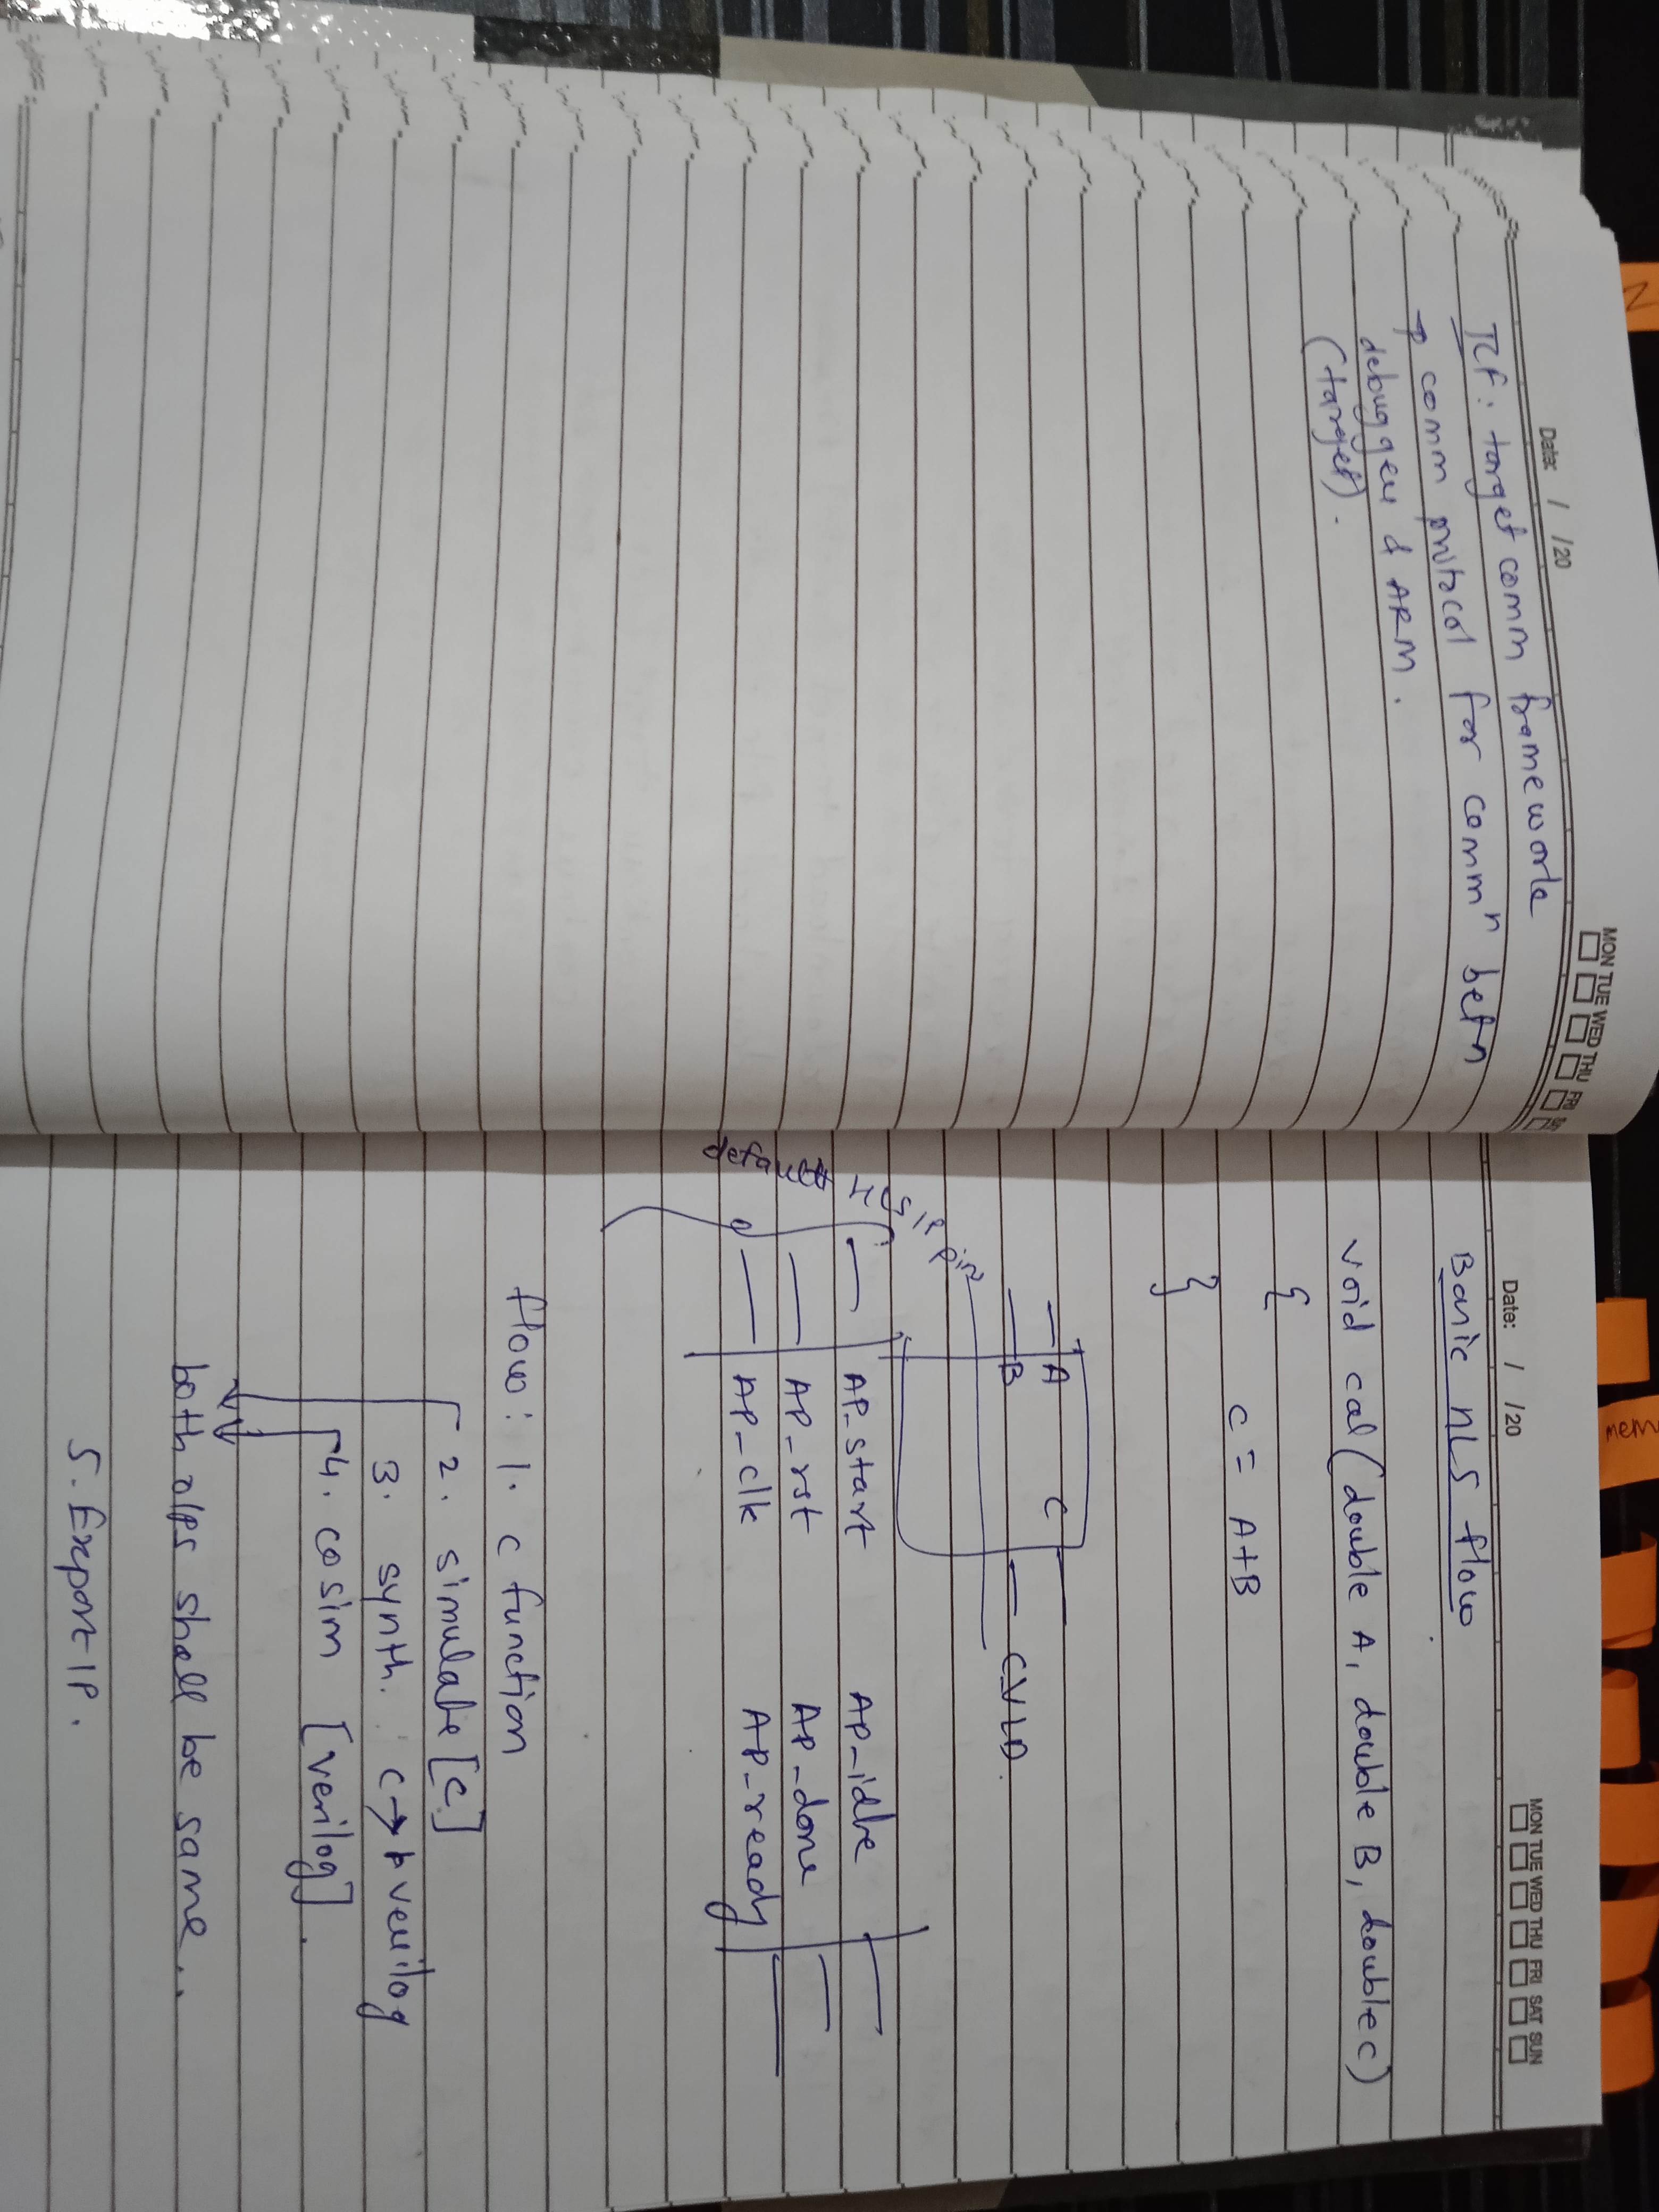 Date: / /20
MON TUE WED THU FRI
TCF: target comm framework
→ comm protocol for commⁿ betn
debugger & ARM.
(target).
Date: / /20
MON TUE WED THU FRI SAT SUN
Basic HLS flow
void cal(double A, double B, double C)
{
C = A+B
}
A C
B CVLD.
default HLS IP pin
AP_start AP_idle
AP_rst AP_done
AP_clk AP_ready
flow: 1. C function
2. simulate [C]
3. synth. C → verilog
4. cosim [verilog].
both o/ps shall be same..
5. Export IP.
mem